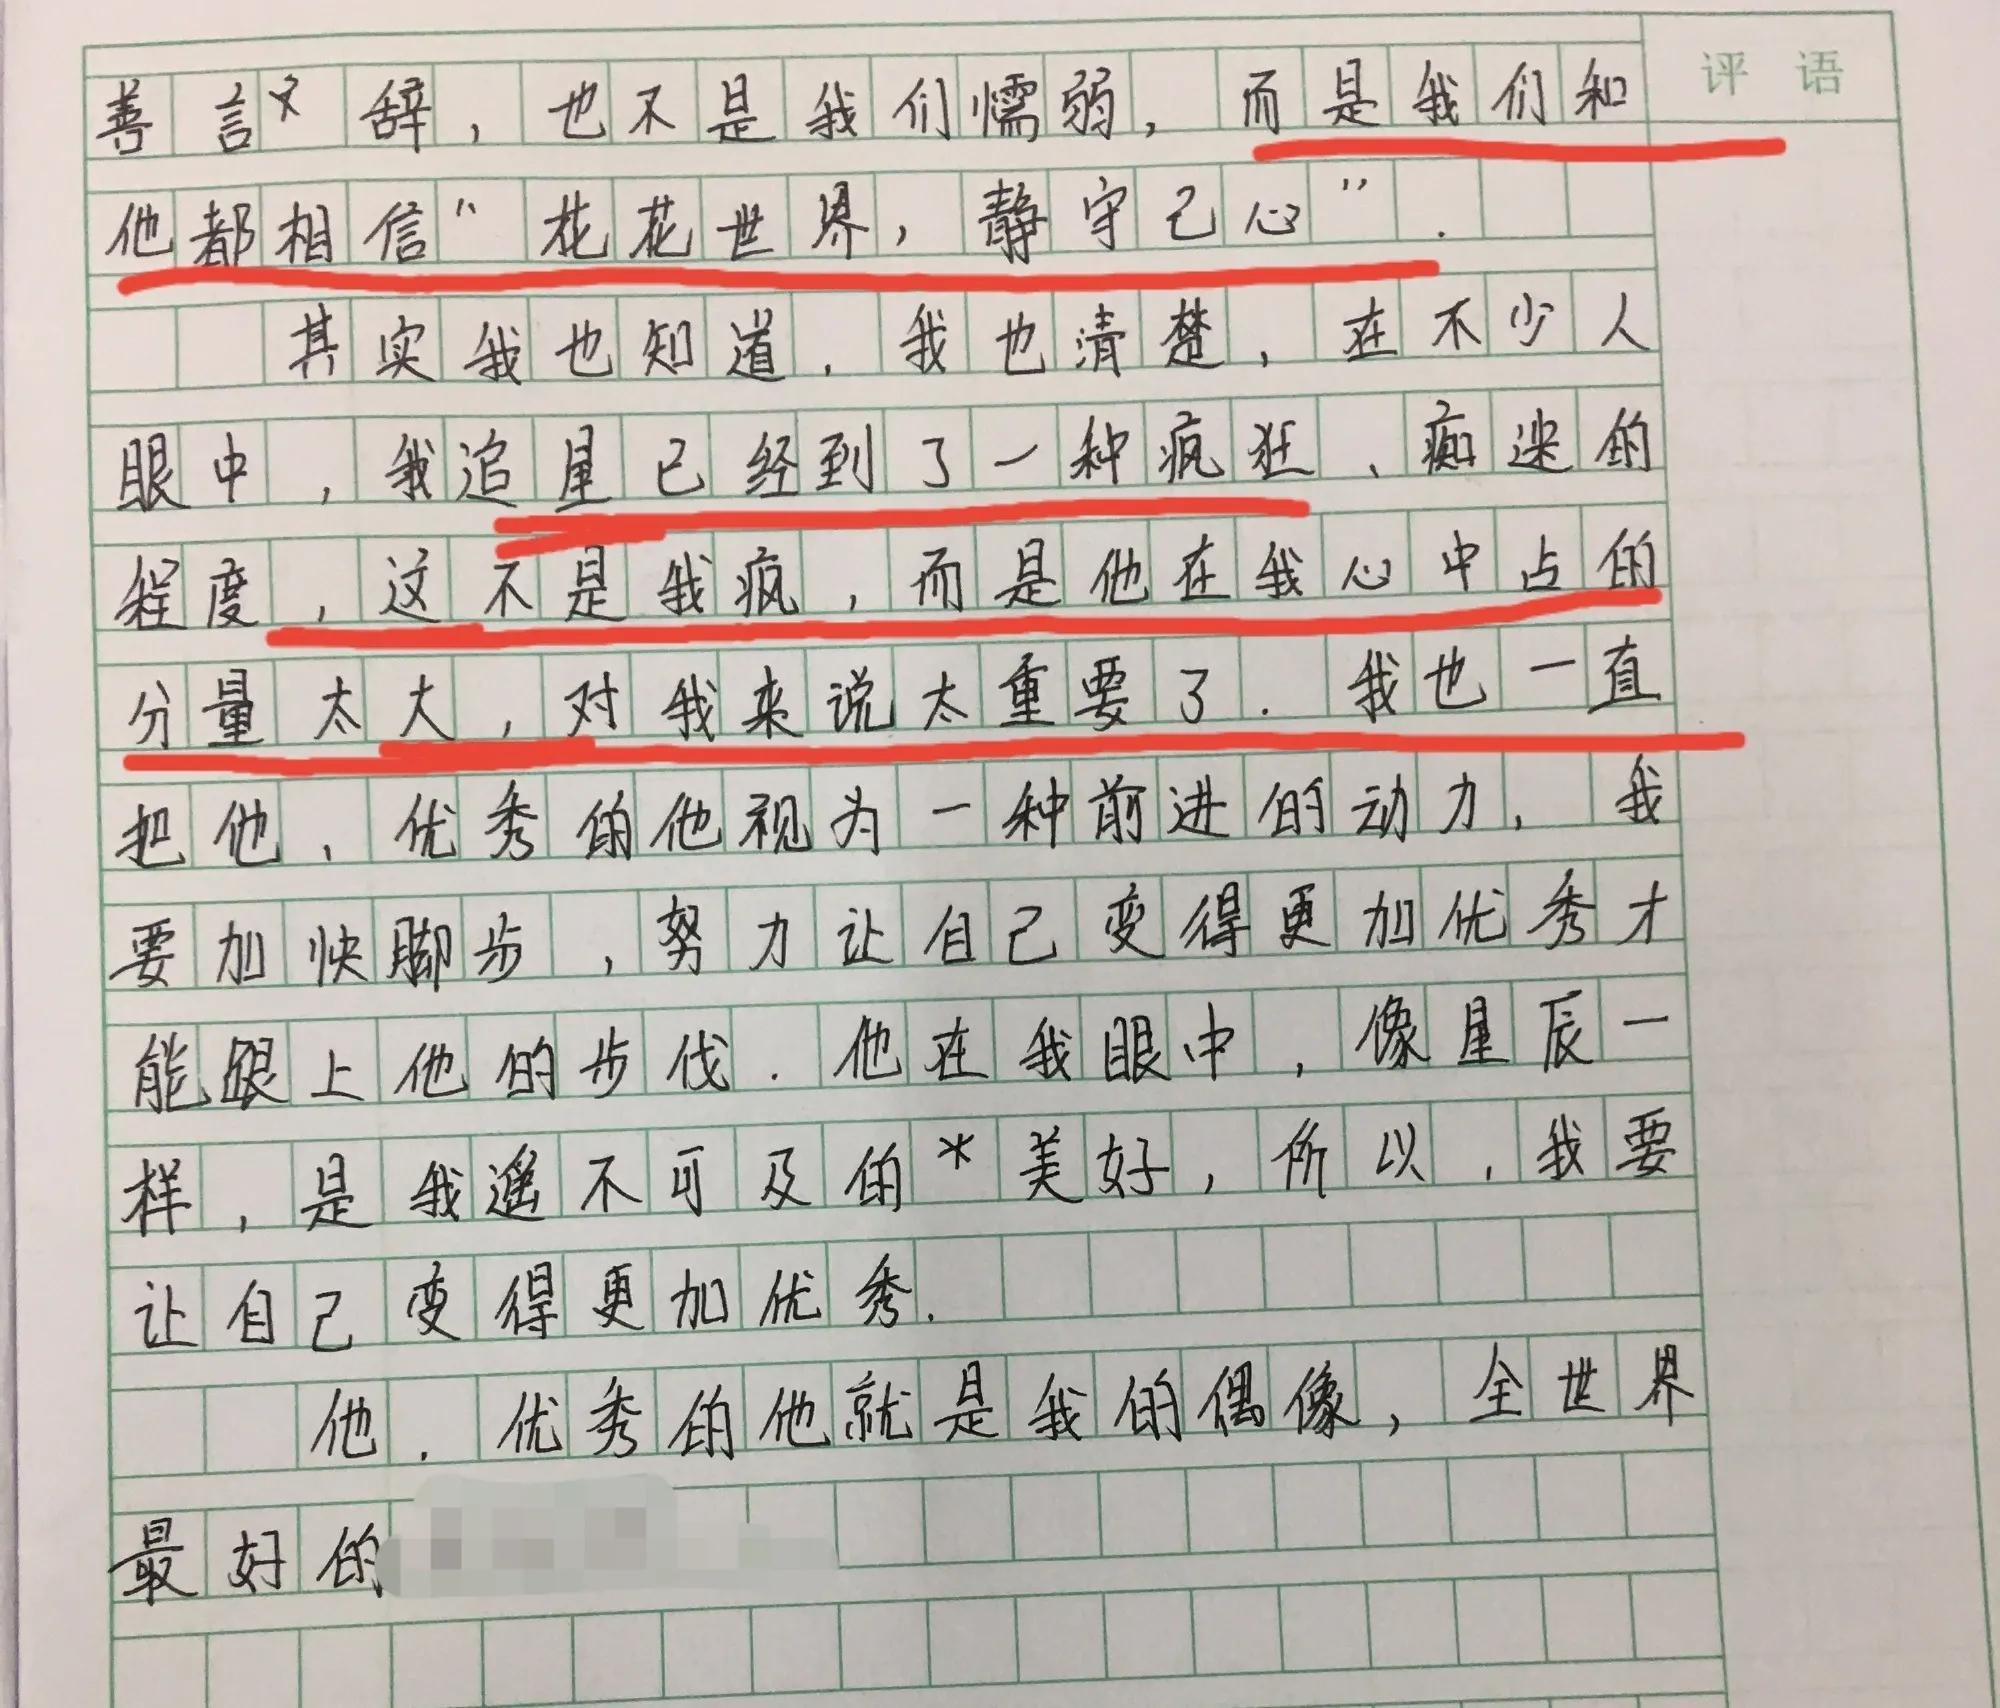 评语
善言文辞，也不是我们懦弱，而是我们和
他都相信“花花世界，静守己心”.
其实我也知道，我也清楚，在不少人
眼中，我追星已经到了一种疯狂、痴迷的
程度，这不是我疯，而是他在我心中占的
分量太大，对我来说太重要了.我也一直
把他，优秀的他视为一种前进的动力，我
要加快脚步，努力让自己变得更加优秀才
能跟上他的步伐.他在我眼中，像星辰一
样，是我遥不可及的*美好，所以，我要
让自己变得更加优秀.
他.优秀的他就是我的偶像，全世界
最好的